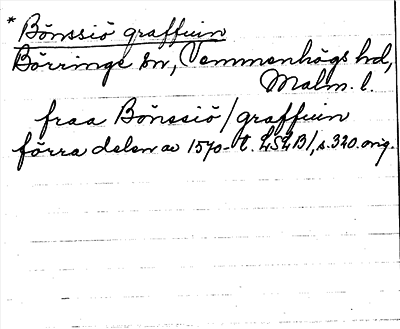 * Bönssiö graffuin
Börringe sn, Vemmenhögs hd,
Malm. l.
fraa Bönssiö/graffuin
förra delen av 1570-t. LSLB1, s. 320. orig.